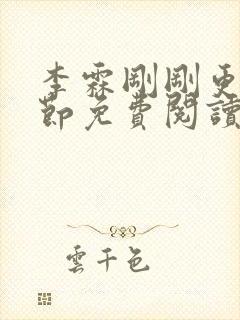 李霖剛剛更
節免費閱讀
雲千色